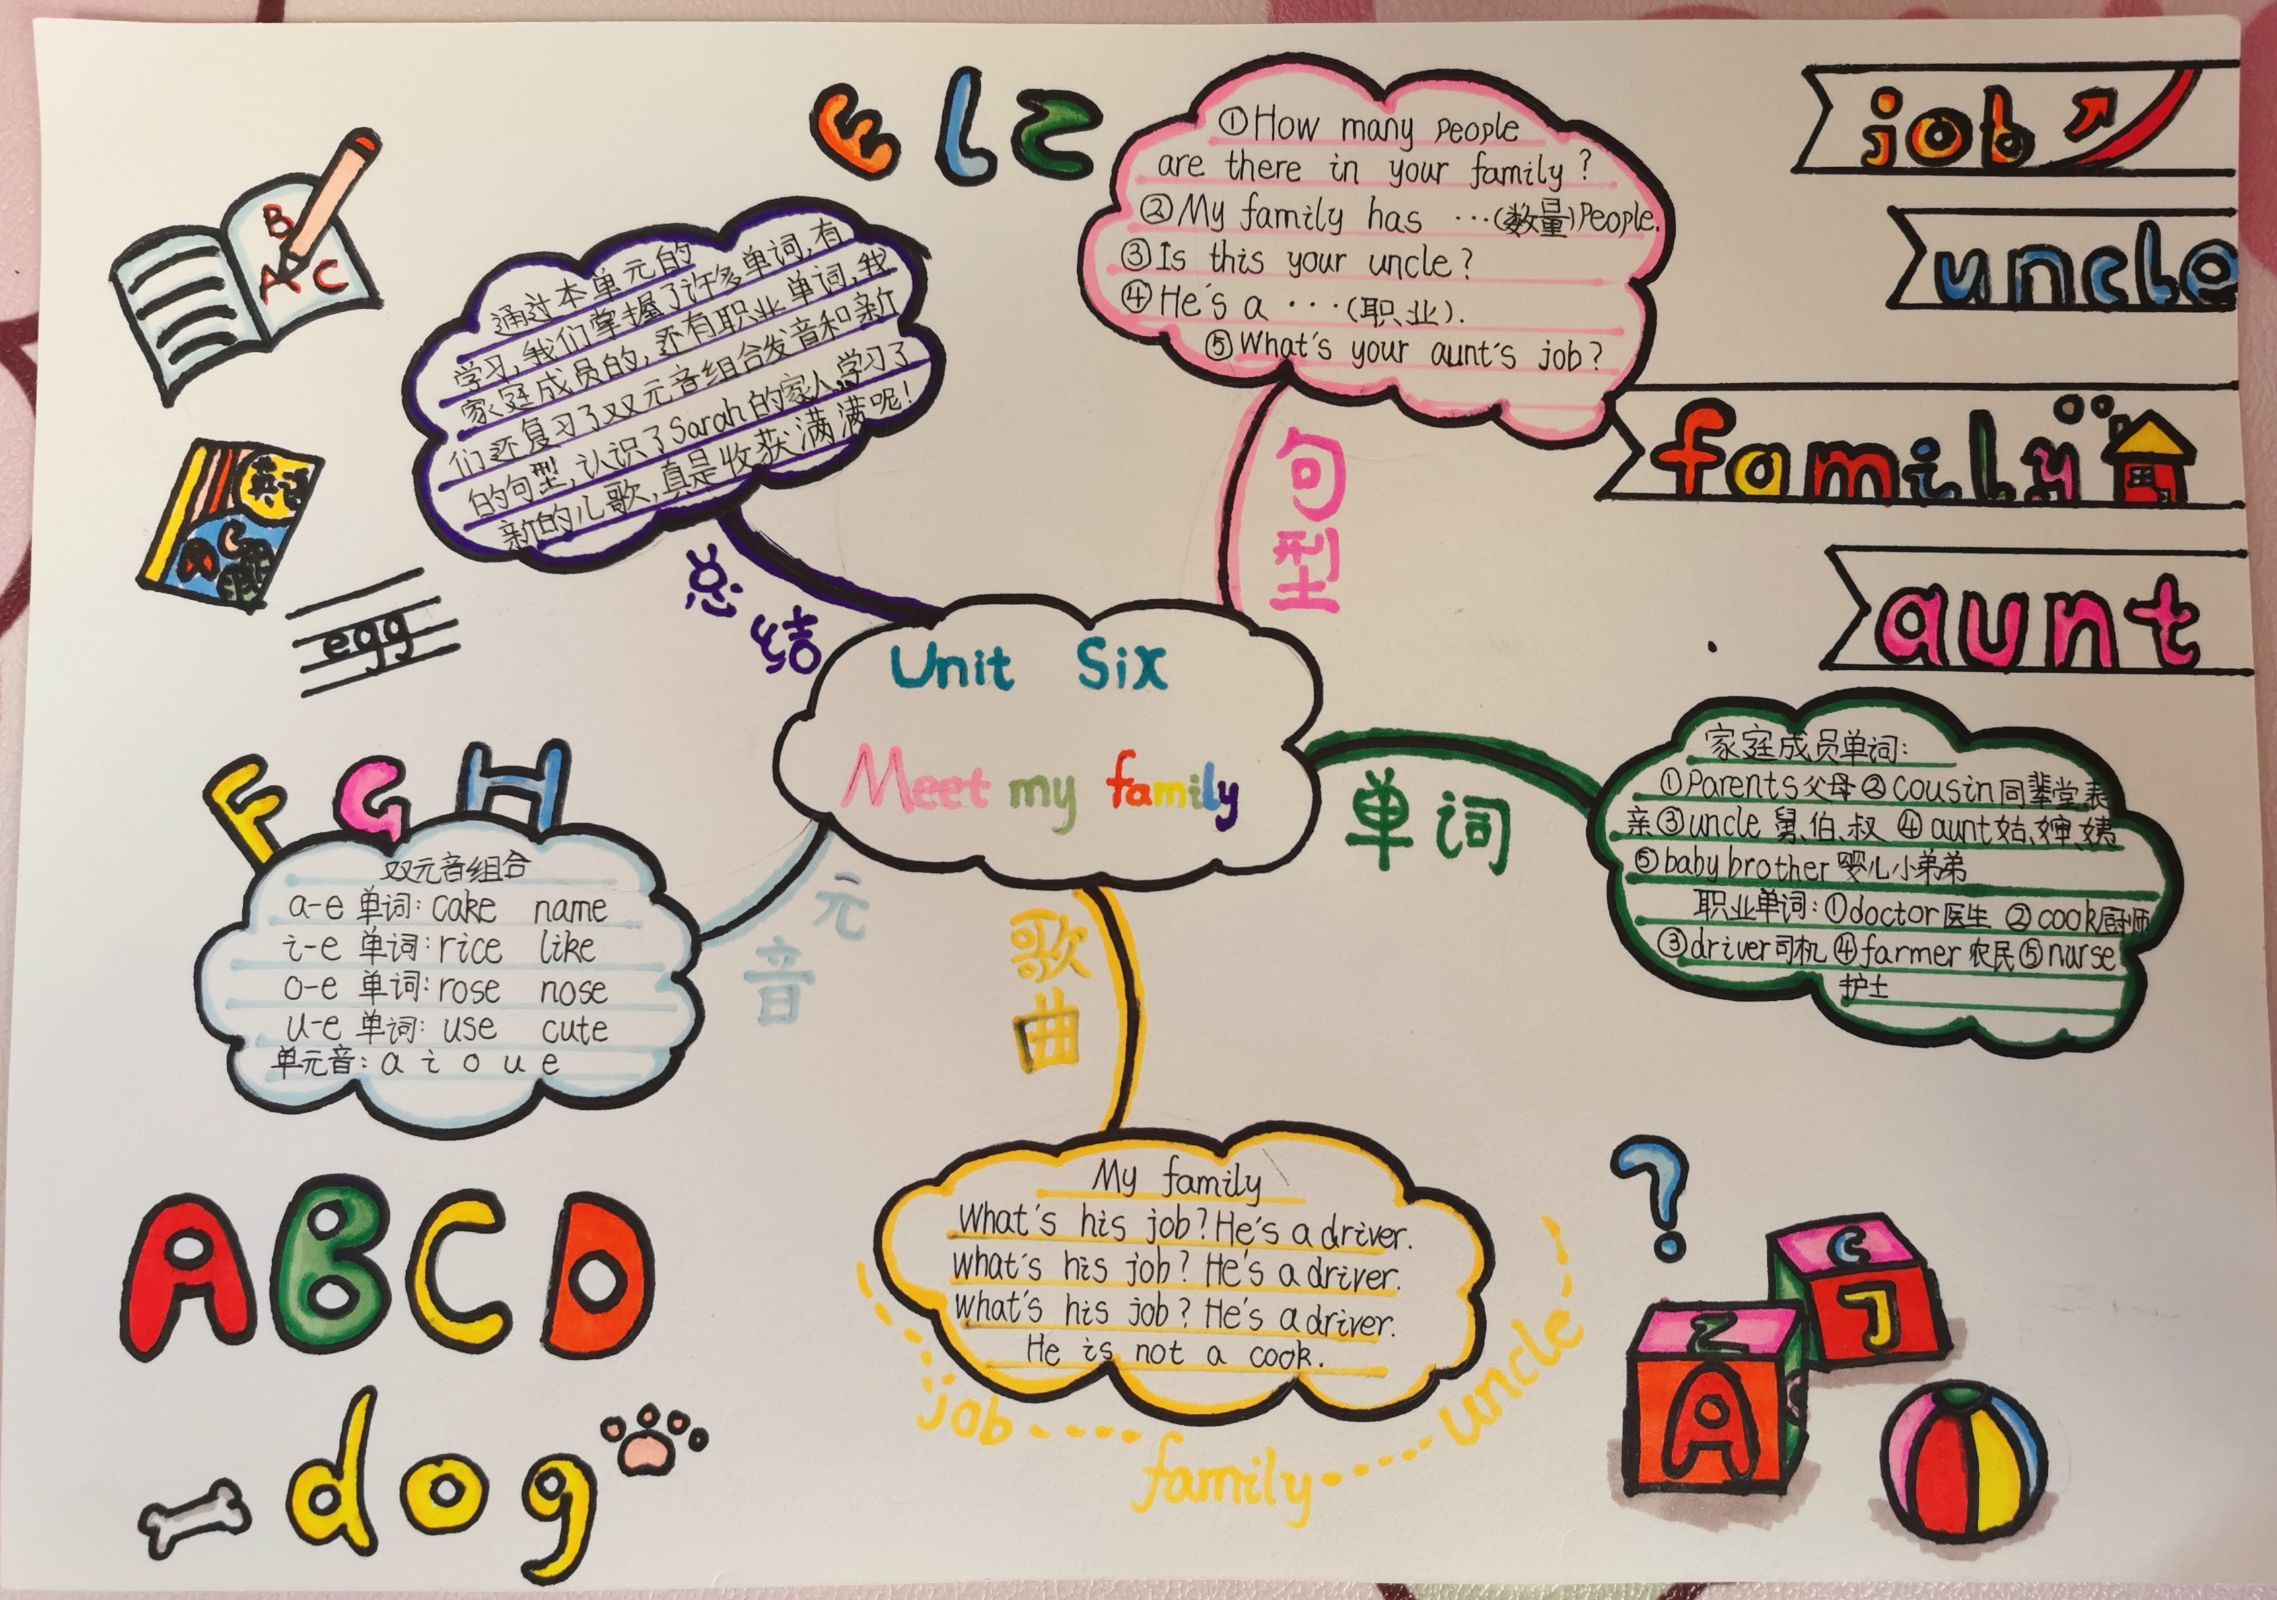 E L Z
B
A C
英语
egg
通过本单元的
学习,我们掌握了许多单词,有
家庭成员的,还有职业单词,我
们还复习了双元音组合发音和新
的句型,认识了Sarah的家人,学习了
新的儿歌,真是收获满满呢!
总结
①How many people
are there in your family?
②My family has ···(数量)People.
③Is this your uncle?
④He's a ···(职业).
⑤What's your aunt's job?
句型
job
uncle
family
aunt
Unit Six
Meet my family
单词
家庭成员单词:
①Parents父母②cousin同辈堂表
亲③uncle 舅、伯、叔 ④aunt姑、婶、姨
⑤baby brother 婴儿小弟弟
职业单词:①doctor医生 ②cook厨师
③driver司机④farmer农民⑤nurse
护士
F G H
双元音组合
a-e 单词: cake name
i-e 单词: rice like
o-e 单词: rose nose
u-e 单词: use cute
单元音: a i o u e
元音
歌曲
My family
What's his job? He's a driver.
What's his job? He's a driver.
What's his job? He's a driver.
He is not a cook.
job ···· family ···· uncle
A B C D
dog
?
C
J
Z
A